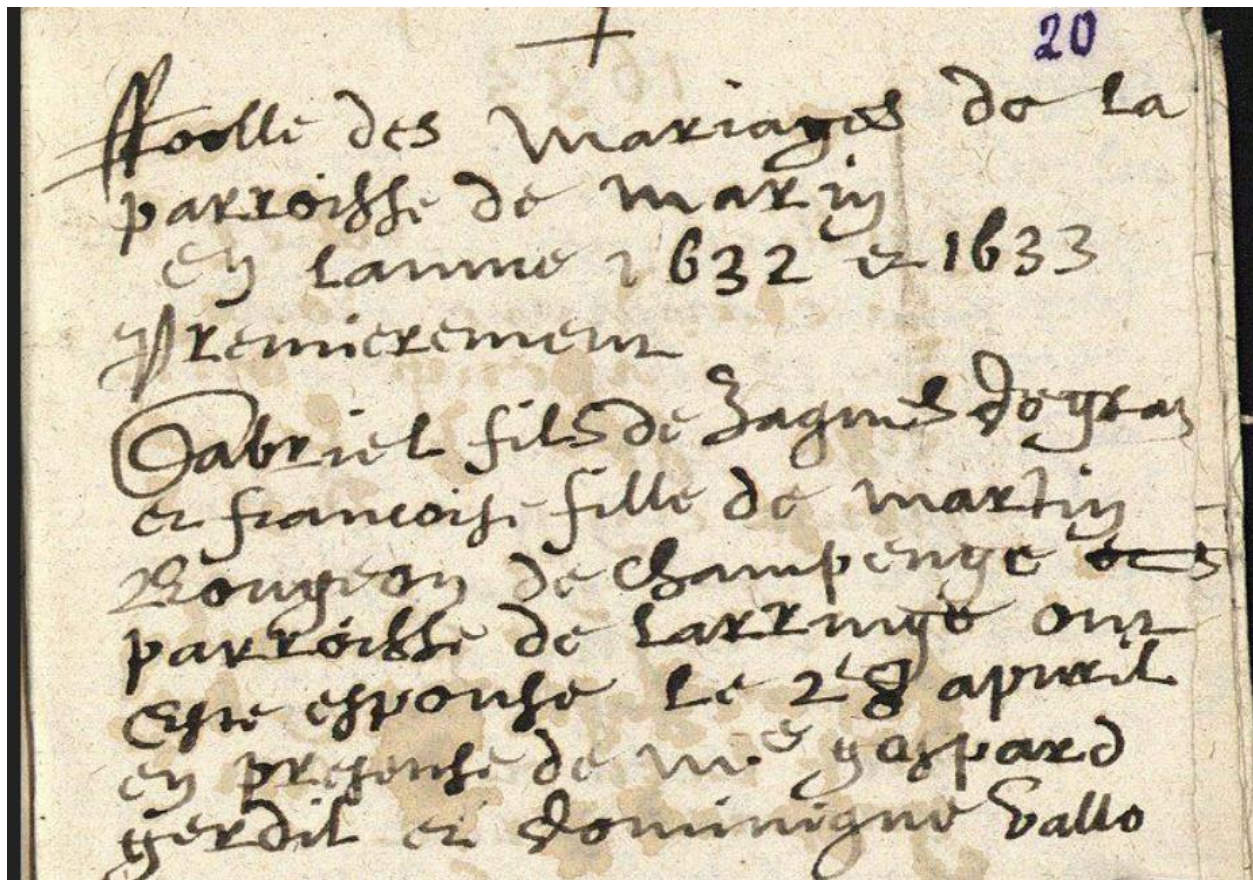 20
Roolle des Mariages de la
parroisse de Marin
en lannee 1632 et 1633
Premierement
Gabriel fils de Jaques Degras
et francoise fille de martin
Bougeon de Champenge
parroisse de Larringe ont
Este espouse le 28 apvril
en presense de me gaspard
gerdil et dominique Vallo